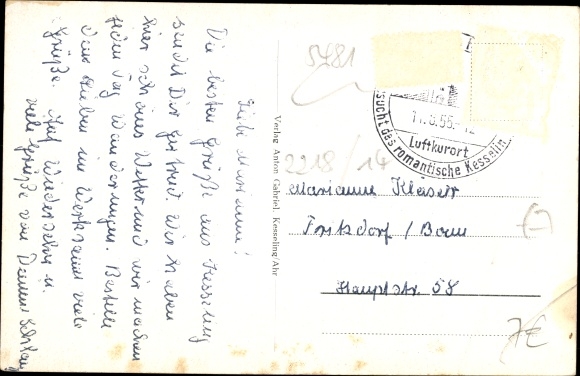 Liebe Marianne!
Die besten Grüße aus Kesseling
sendet Dir Gertrud. Wir haben
hier schönes Wetter und wir machen
jeden Tag Wanderungen. Bestelle
dem lieben im Werk seine viele
Grüße. Auf Wiedersehn u.
viele Grüße von Deinem
Verlag Anton Gabriel, Kesseling/Ahr
5481
11.8.56-12
Luftkurort
sucht des romantische Kesseling
2218/14
Marianne Kläser
Fritzdorf / Bonn
Hauptstr. 58
7€